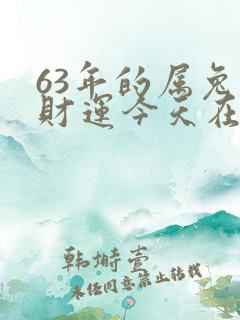 63年的属兔
财运今天在
韩埘壹
未经同意禁止转载